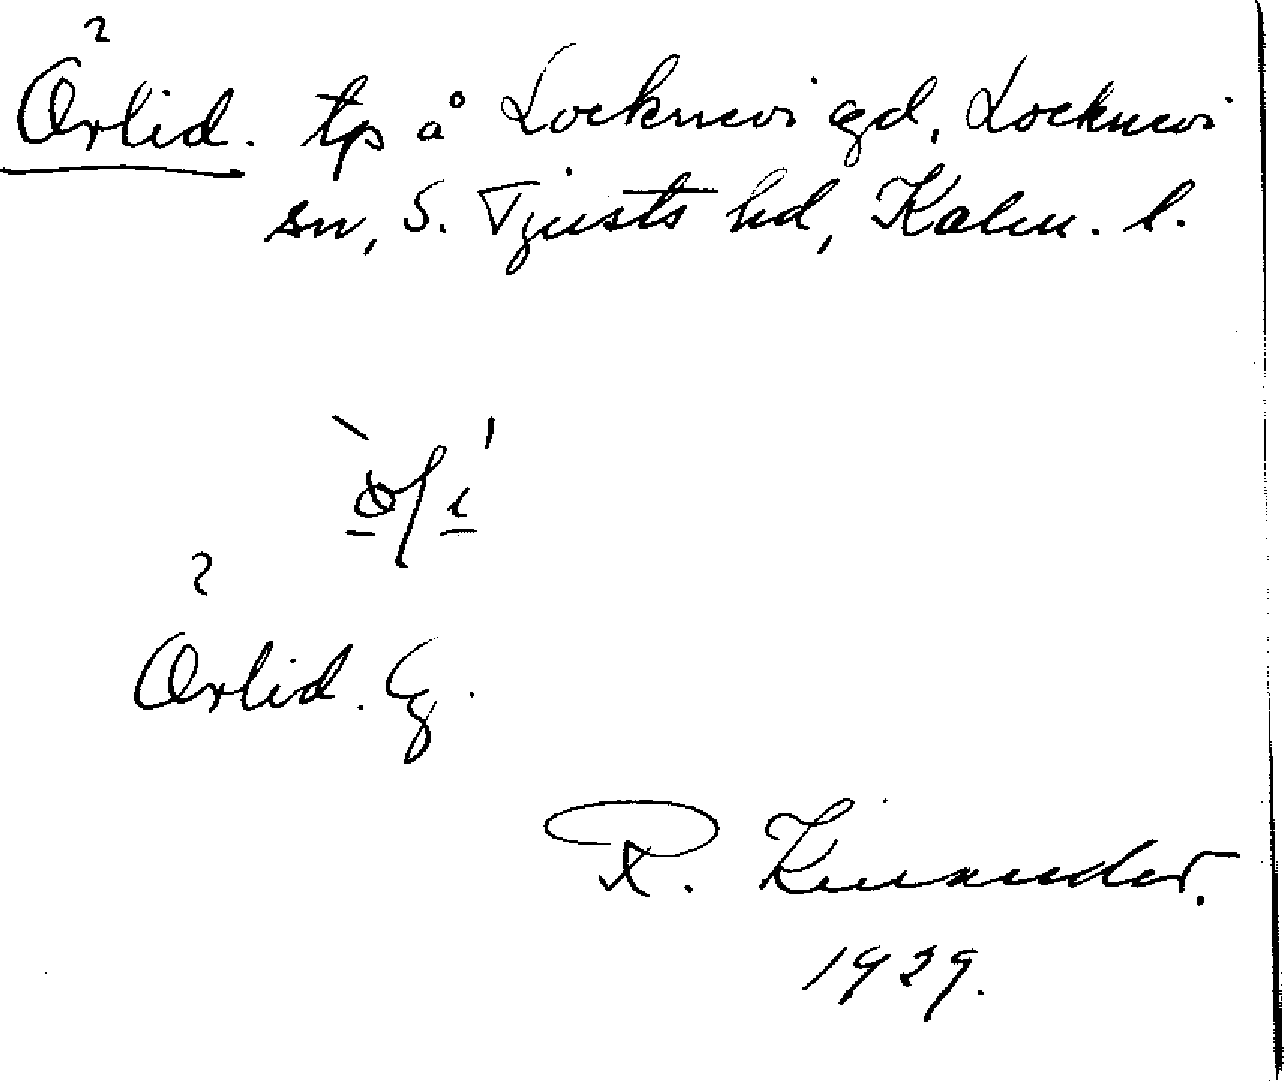 Örlid. tp å Locknevi gd, Locknevi
sn, S. Tjusts hd, Kalm. l.
ö/i
Örlid. Ej.
R. Kinander.
1929.